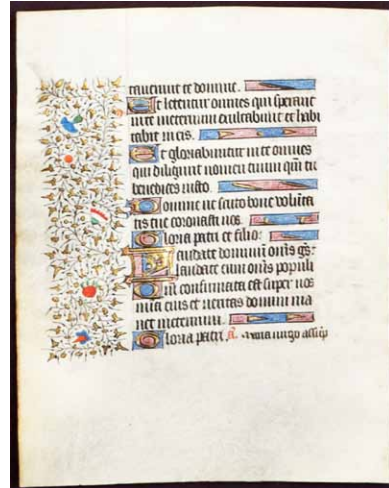 rauerunt te domine.
Et letentur omnes qui sperant
in te in eternum exultabunt et habi
tabis in eis.
Et gloriabuntur in te omnes
qui diligunt nomen tuum qm̄ tu
benedices iusto.
Domine ut scuto bone volūta
tis tue coronasti nos.
Gloria patri et filio.
Laudate dominum om̄s gē̄s:
laudate eum om̄s populi
Qm̄ confirmata est super nos
mīa eius et ueritas domini ma
net in eternum.
Gloria patri. A. Maria uirgo assūp